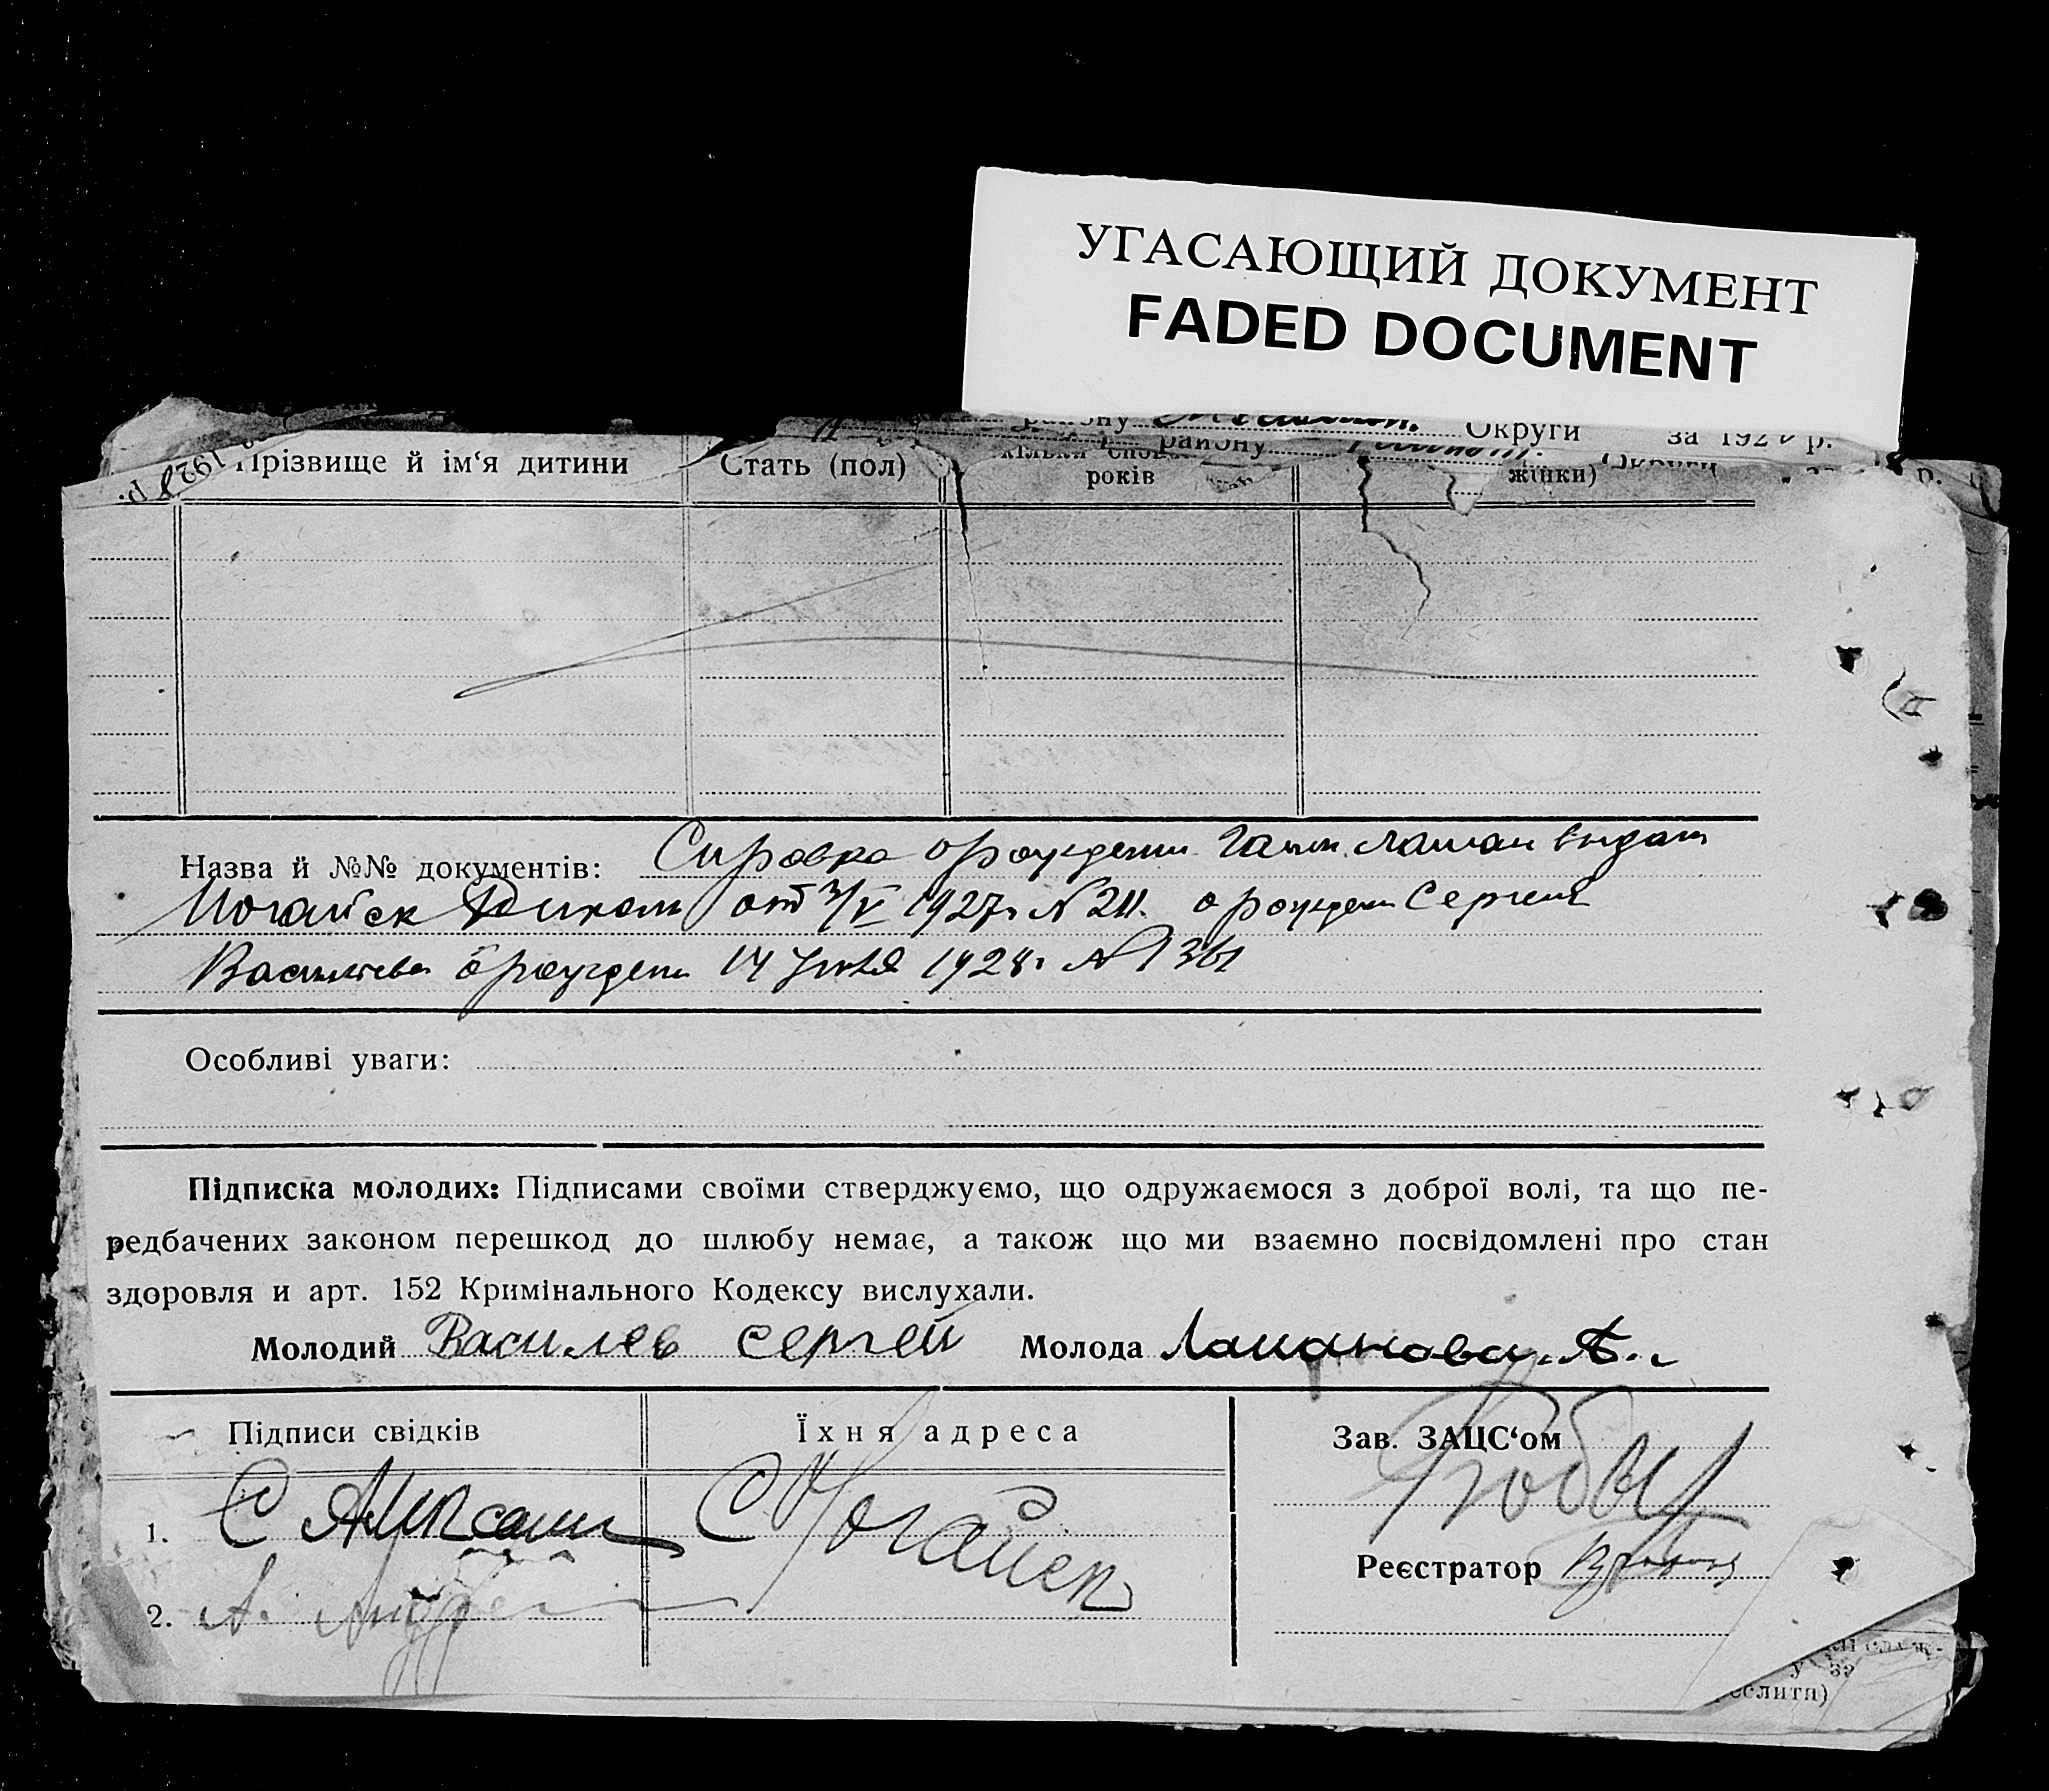 УГАСАЮЩИЙ ДОКУМЕНТ
FADED DOCUMENT
району Округи за 192 р.
району Округи р.
Прізвище й ім‘я дитини Стать (пол) років жінки)
Назва й №№ документів: Справка о рождении выдан
Ногайск от 3/V 1927г N 211. о рожден Сергея
Васильева о рожден 14 Июля 1928г N 1361
Особливі уваги:
Підписка молодих: Підписами своїми стверджуємо, що одружаємося з доброї волі, та що пе-
редбачених законом перешкод до шлюбу немає, а також що ми взаємно посвідомлені про стан
здоровля и арт. 152 Кримінального Кодексу вислухали.
Молодий Василев Сергей Молода Лашанова А.
Підписи свідків Їхня адреса Зав. ЗАЦС‘ом
1. С Ногайск
Реєстратор
2. А.